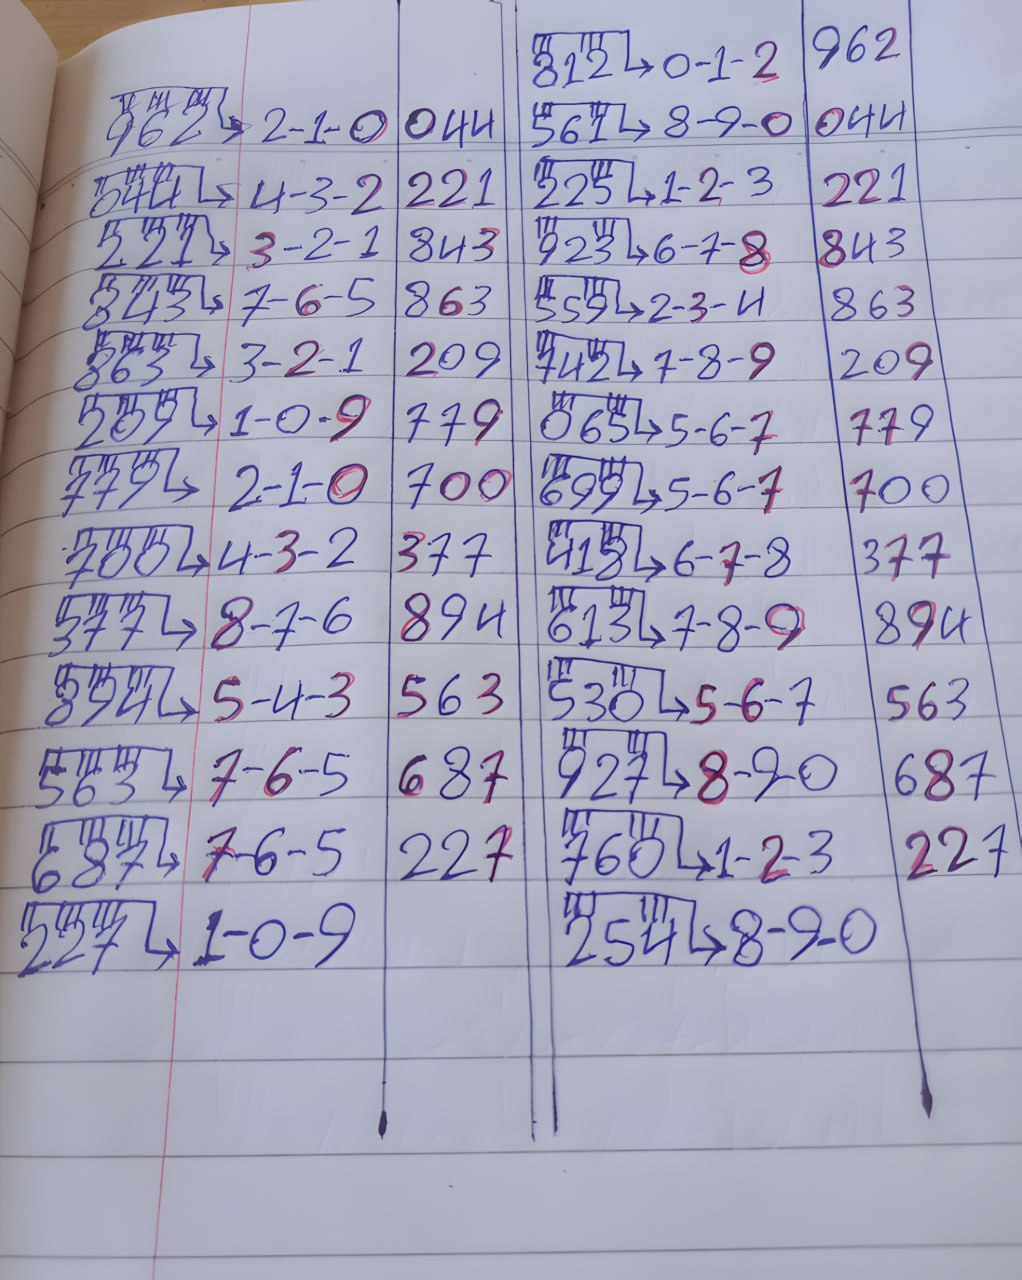 812 → 0-1-2 962
962 → 2-1-0 044 561 → 8-9-0 044
044 → 4-3-2 221 225 → 1-2-3 221
221 → 3-2-1 843 923 → 6-7-8 843
843 → 7-6-5 863 559 → 2-3-4 863
863 → 3-2-1 209 742 → 7-8-9 209
209 → 1-0-9 779 065 → 5-6-7 779
779 → 2-1-0 700 699 → 5-6-7 700
700 → 4-3-2 377 418 → 6-7-8 377
377 → 8-7-6 894 613 → 7-8-9 894
894 → 5-4-3 563 530 → 5-6-7 563
563 → 7-6-5 687 927 → 8-9-0 687
687 → 7-6-5 227 760 → 1-2-3 227
227 → 1-0-9 254 → 8-9-0